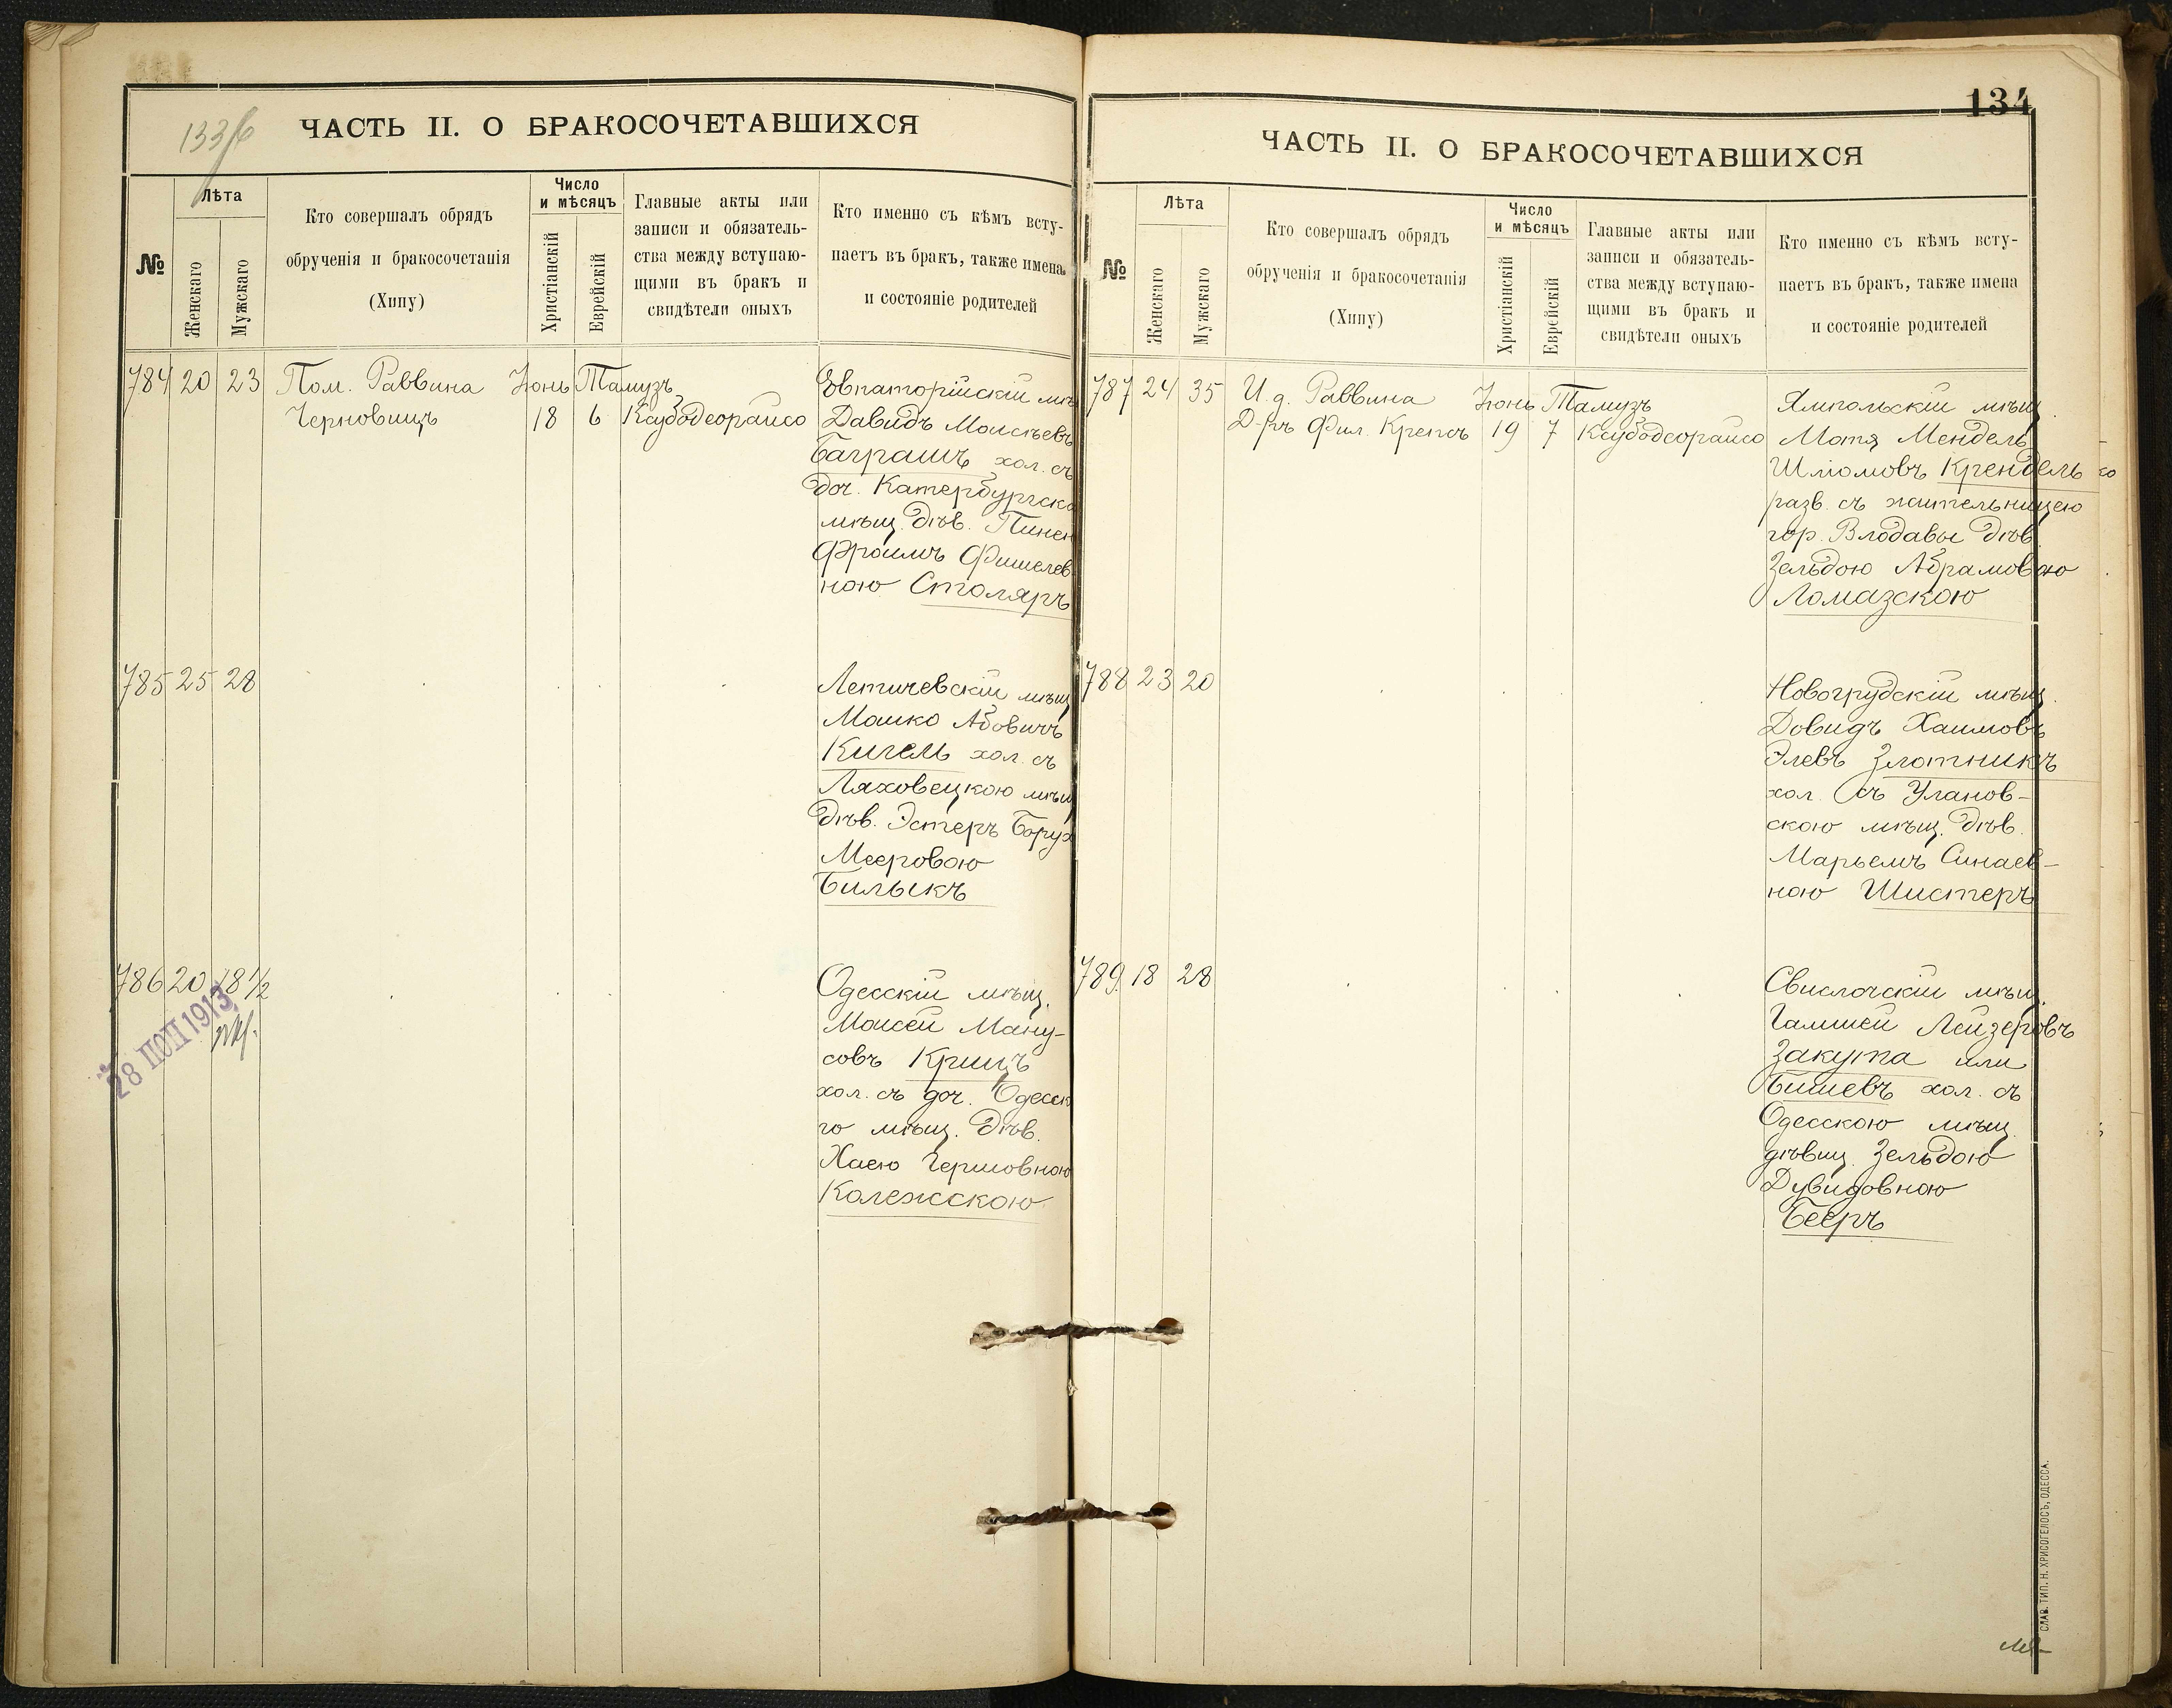 133/б
ЧАСТЬ II. О БРАКОСОЧЕТАВШИХСЯ
№
Лѣта
Женскаго
Мужскаго
Кто совершалъ обрядъ
обрученія и бракосочетанія
(Хипу)
Число
и мѣсяцъ
Христіанскій
Еврейскій
Главные акты или
записи и обязатель-
ства между вступаю-
щими въ бракъ и
свидѣтели оныхъ
Кто именно съ кѣмъ всту-
паетъ въ бракъ, также имена
и состояніе родителей
784 20 23 Пом. Раввина Іюнь Тамузъ
Черновицъ 18 6 Ксубодеорайсо
Евпаторійскій мѣщ
Давидъ Моисѣевъ
Баграшъ хол. съ
доч. Катербургска
мѣщ. дѣв. Пинен
Фроимъ Фишелев
ною Столяръ
785 25 28
Летичевскій мѣщ
Мошко Абовичъ
Кигель хол. съ
Ляховецкою мѣщ
дѣв. Эстеръ Борух
Мееровою
Бильскъ
786 20 18 1/2
28 1913
Одесскій мѣщ.
Моисей Ману-
совъ Крицъ
хол. съ доч. Одесск
го мѣщ. дѣв.
Хаею Гершовною
Колежскою
134
ЧАСТЬ II. О БРАКОСОЧЕТАВШИХСЯ
№
Лѣта
Женскаго
Мужскаго
Кто совершалъ обрядъ
обрученія и бракосочетанія
(Хипу)
Число
и мѣсяцъ
Христіанскій
Еврейскій
Главные акты или
записи и обязатель-
ства между вступаю-
щими въ бракъ и
свидѣтели оныхъ
Кто именно съ кѣмъ всту-
паетъ въ бракъ, также имена
и состояніе родителей
787 24 35 И. д. Раввина Іюнь Тамузъ
Д-ръ Фил. Крепсъ 19 7 Ксубодеорайсо
Ямпольскій мѣщ.
Мотя Мендель
Шліомовъ Крендель
разв. съ жительницею
гор. Влодавы дѣв.
Зельдою Абрамовою
Ломазскою
788 23 20
Новогрудскій мѣщ.
Довидъ Хаимовъ
Элевъ Злотникъ
хол. съ Уланов-
скою мѣщ. дѣв.
Марьемъ Синаев-
ною Шистеръ
789. 18 28
Свислочскій мѣщ.
Гамшей Лейзеровъ
Закута или
Бишевъ хол. съ
Одесскою мѣщ.
дѣвиц. Зельдою
Дувидовною
Бееръ
СЛАВ. ТИП. Н. ХРИСОГЕЛОСЪ, ОДЕССА.